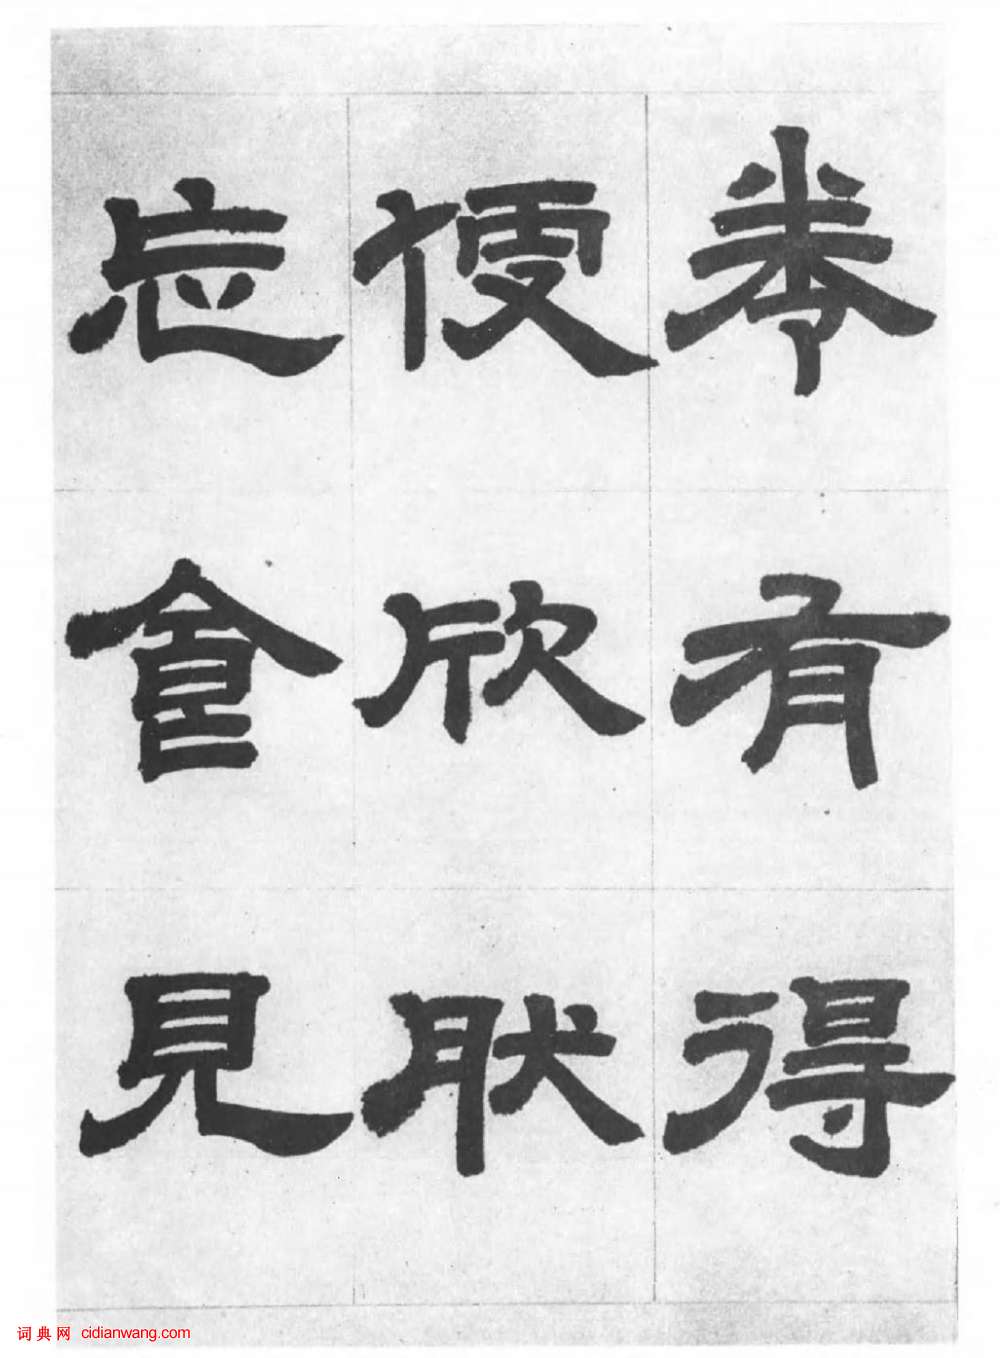 卷有得
便欣肰
忘食見
词典网 cidianwang.com